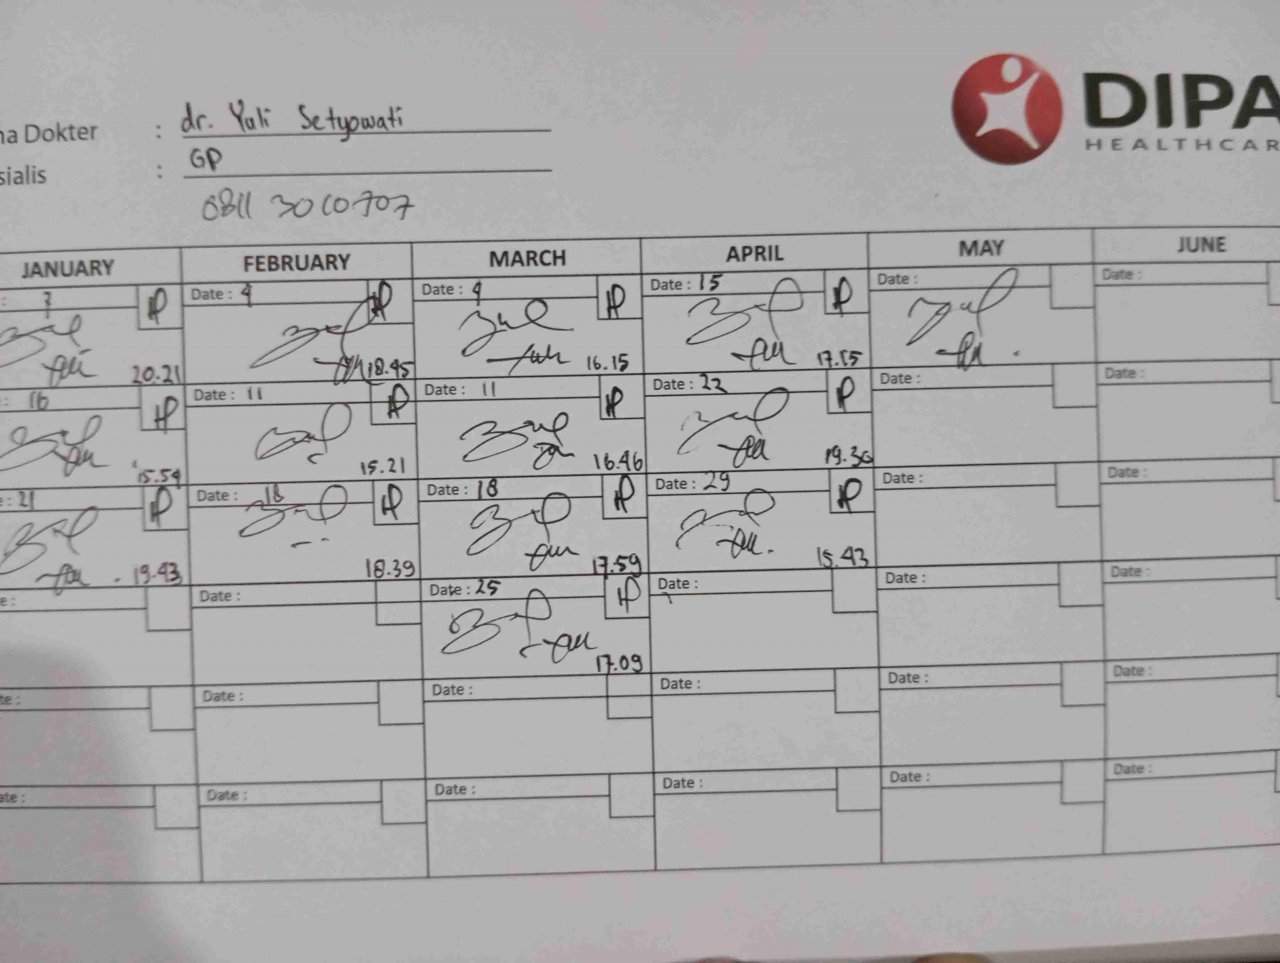 na Dokter : dr. Yuli Setyowati
sialis : GP
0811 3010707
DIPA
HEALTHCAR
JANUARY FEBRUARY MARCH APRIL MAY JUNE
: 7 Date : 4 Date : 4 Date : 15 Date : Date :
20.21 18.45 16.15 17.15
: 16 Date : 11 Date : 11 Date : 22 Date : Date :
15.54 15.21 16.46 19.30
e : 21 Date : 18 Date : 18 Date : 29 Date : Date :
19.43 18.39 17.59 15.43
e : Date : Date : 25 Date : Date : Date :
17.09
te : Date : Date : Date : Date : Date :
ate : Date : Date : Date : Date : Date :